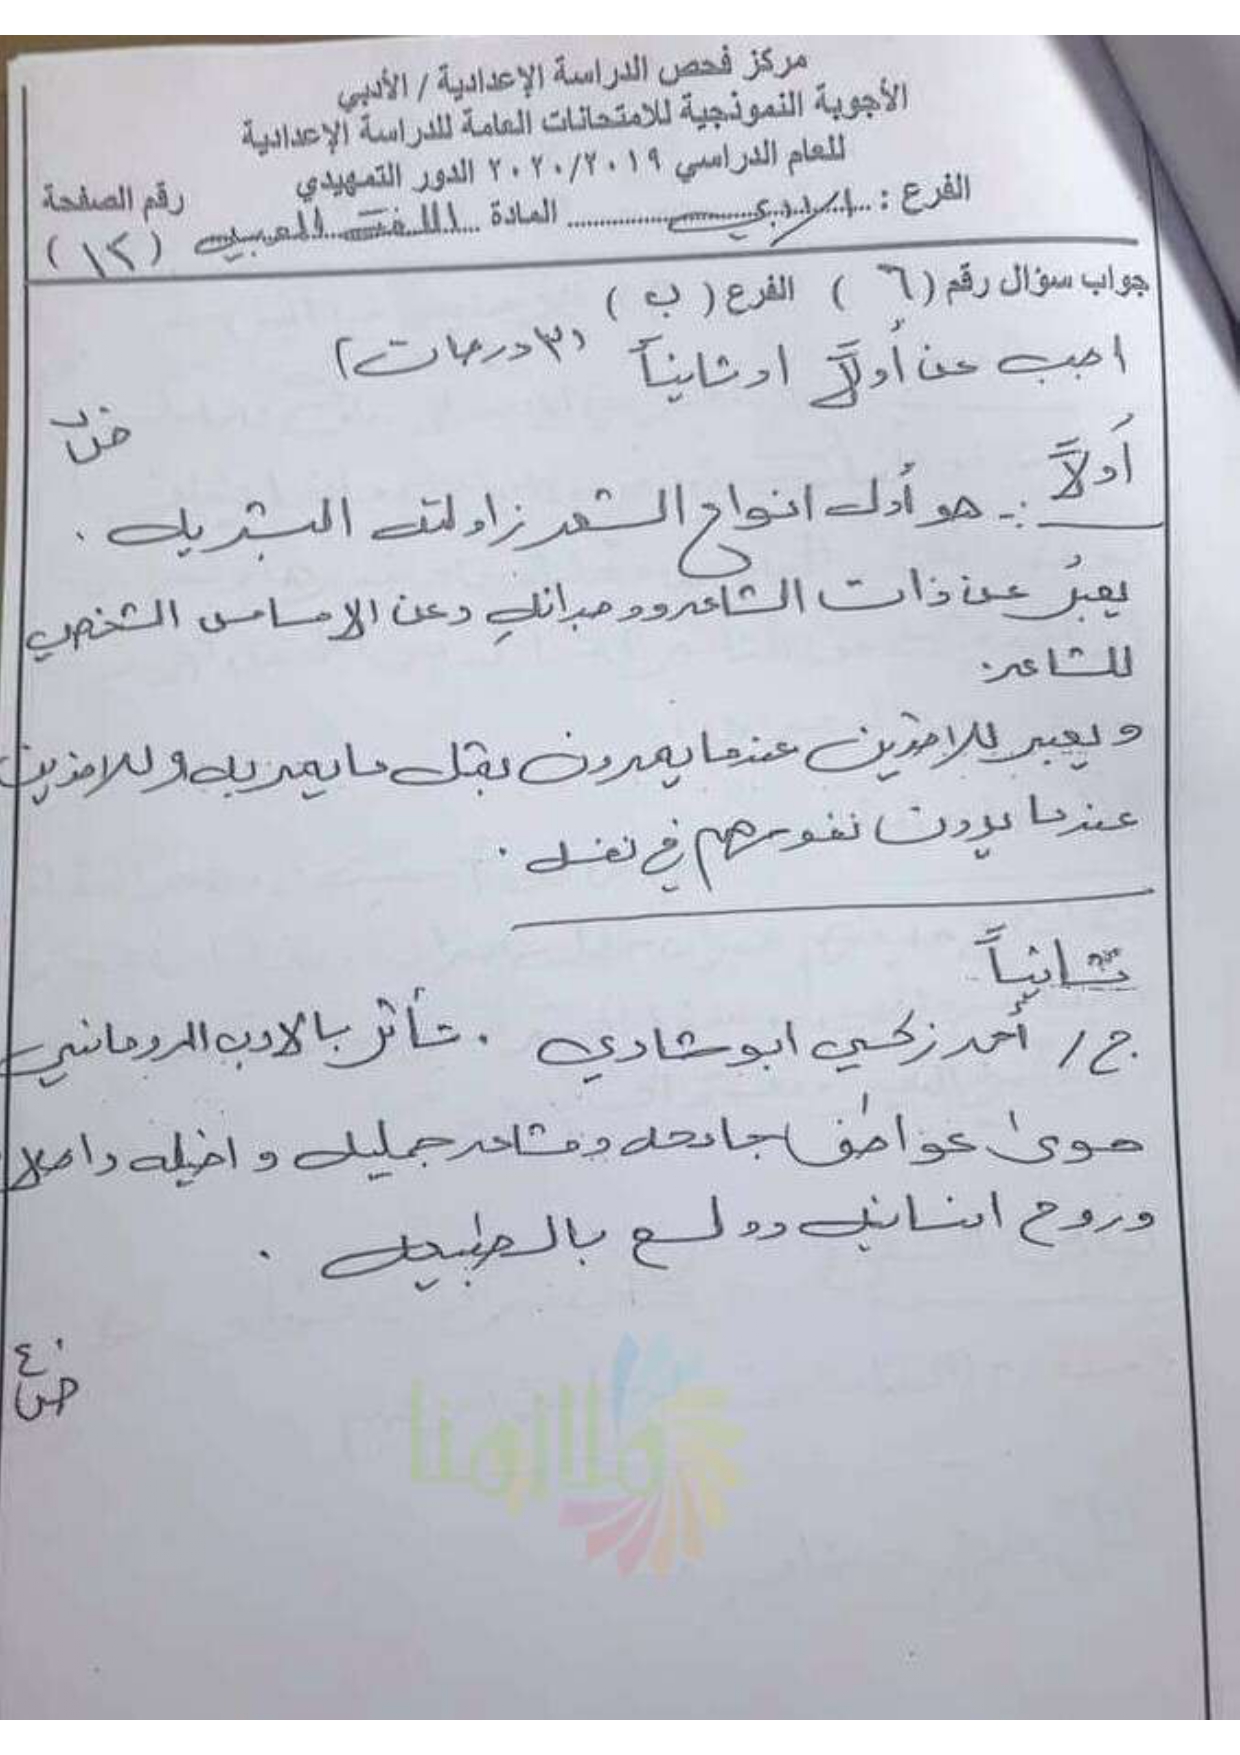 مركز فحص الدراسة الإعدادية / الأدبي
الأجوبة النموذجية للامتحانات العامة للدراسة الإعدادية
للعام الدراسي ٢٠٢٠/٢٠١٩ الدور التمهيدي
الفرع : ادبي المادة اللغة العربية رقم الصفحة (١٢)
جواب سؤال رقم (٦) الفرع (ب)
اجب عن أولاً او ثانياً (٣ درجات)
أولاً :- هو أول انواع الشعر زاولته البشرية .
يعبرُ عن ذات الشاعر ووجدانه وعن الاحساس الشخصي
للشاعر.
ويعبر للاخرين عندما يمرون بمثل ما يمر به وللاخرين
عندما يرون نفوسهم في نفسه .
ثانياً
ج / أحمد زكي ابو شادي . تأثر بالادب الروماني
حوى عواطف جامحه ومشاعر جميله واخيله
وروح انسانيه وولع بالطبيعه .
ص٤
ملازمنا